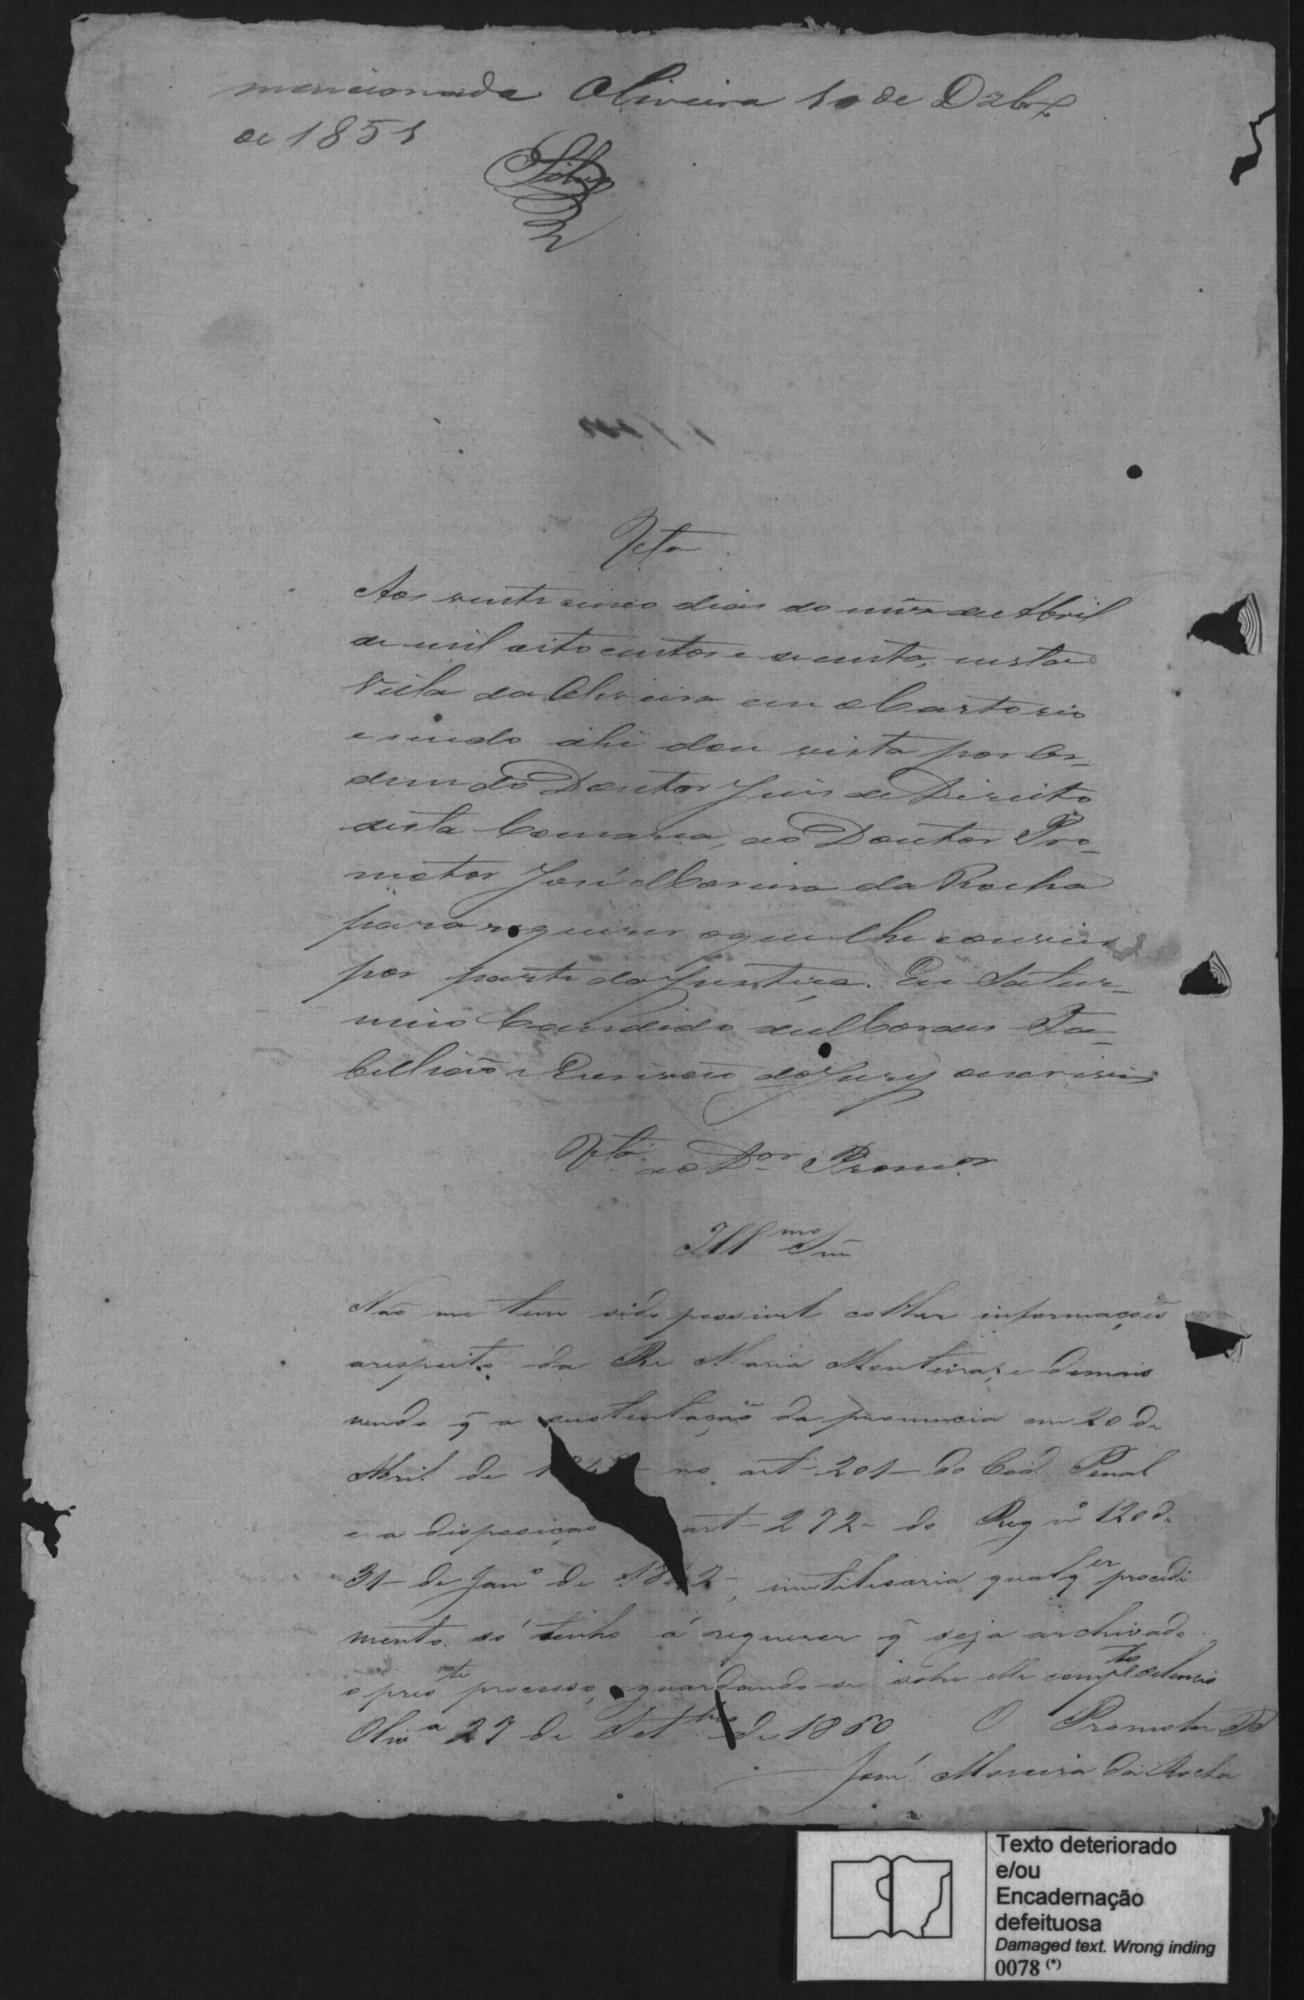 mencionada Oliveira 10 de Dzbr.
de 1851
Silva
Vta
Aos vinte cinco dias do mes de Abril
de mil oito centos e secenta, nesta
Villa da Oliveira em o Cartorio
e sendo ahi dou vista por or-
dem do Doutor Juis de Direito
desta Comarca, ao Doutor Pro-
motor José Moreira da Rocha
para requerer oque lhe convier
por parte da Justiça. Eu Satur-
nino Candido de Moraes Ta-
bellião e Escrivão do Jury escrevi
Vta ao Dor Promor
Illmo Snr
Não me tem sido possivel colher informações
arespeito da Re Maria Monteira, e demais
vendo q̃ a sustentação da pronuncia em 20 de
Abril de no art 201 do Cod. Penal
e a disposição art 272 do Reg nº 120 de
31 de Janº de 1842, inutilisaria qualqer procedi
mento. só tenho á requerer q̃ seja archivado
o preste processo, guardando-se sobre elle complto silencio
Olivª 27 de Setbro de 1860 O Promotor P
José Moreira da Rocha
Texto deteriorado
e/ou
Encadernação
defeituosa
Damaged text. Wrong inding
0078 (*)